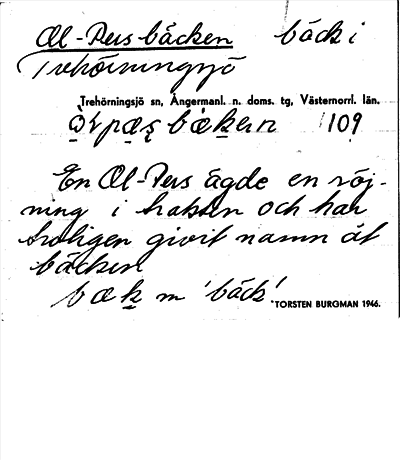 Ol-Pers bäcken bäck i
Trehörningsjö
Trehörningsjö sn, Ångermanl. n. doms. tg, Västernorrl. län.
109
En Ol-Pers ägde en röj-
ning i trakten och har
troligen givit namn åt
bäcken
bæk m 'bäck'
TORSTEN BURGMAN 1946.